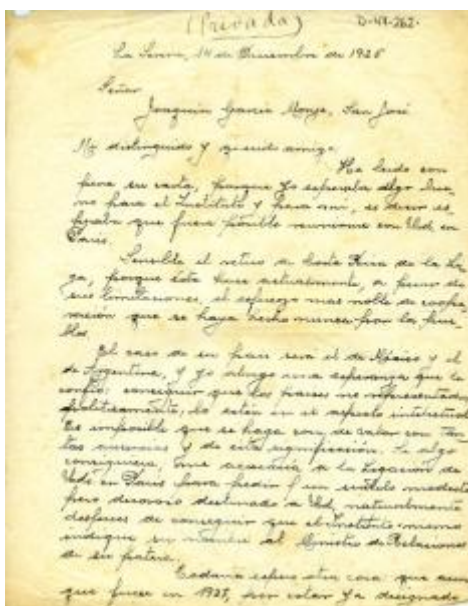 (Privada) D-44-262.
La Serena, 14 de Diciembre de 1925
Señor
Joaquín García Monge, San José
Mi distinguido y querido amigo:
He leído con
pena su carta, porque yo esperaba algo bue
no para el Instituto y para mí, es decir es
peraba que fuera posible reunirme con Ud. en
París.
Sensible el retiro de Costa Rica de la Li
ga, porque ésta hace actualmente, a pesar de
sus limitaciones, el esfuerzo más noble de coope
ración que se haya hecho nunca por los pue
blos.
El caso de su país será el de México y el
de Argentina, y yo abrigo una esperanza que le
confío: conseguir que los países no representados
políticamente, lo estén en el aspecto intelectual.
Es imposible que se haga
y de esta significación. Si algo
consiguiera, me acercaría a la Legación de
Uds. en París para pedir un sueldo modesto
pero decoroso destinado a Ud., naturalmente
después de conseguir que el Instituto mismo
indique su nombre al Ministro de Relaciones
de su patria.
Todavía espero otra cosa que
que fuese en 1927, por estar ya designado